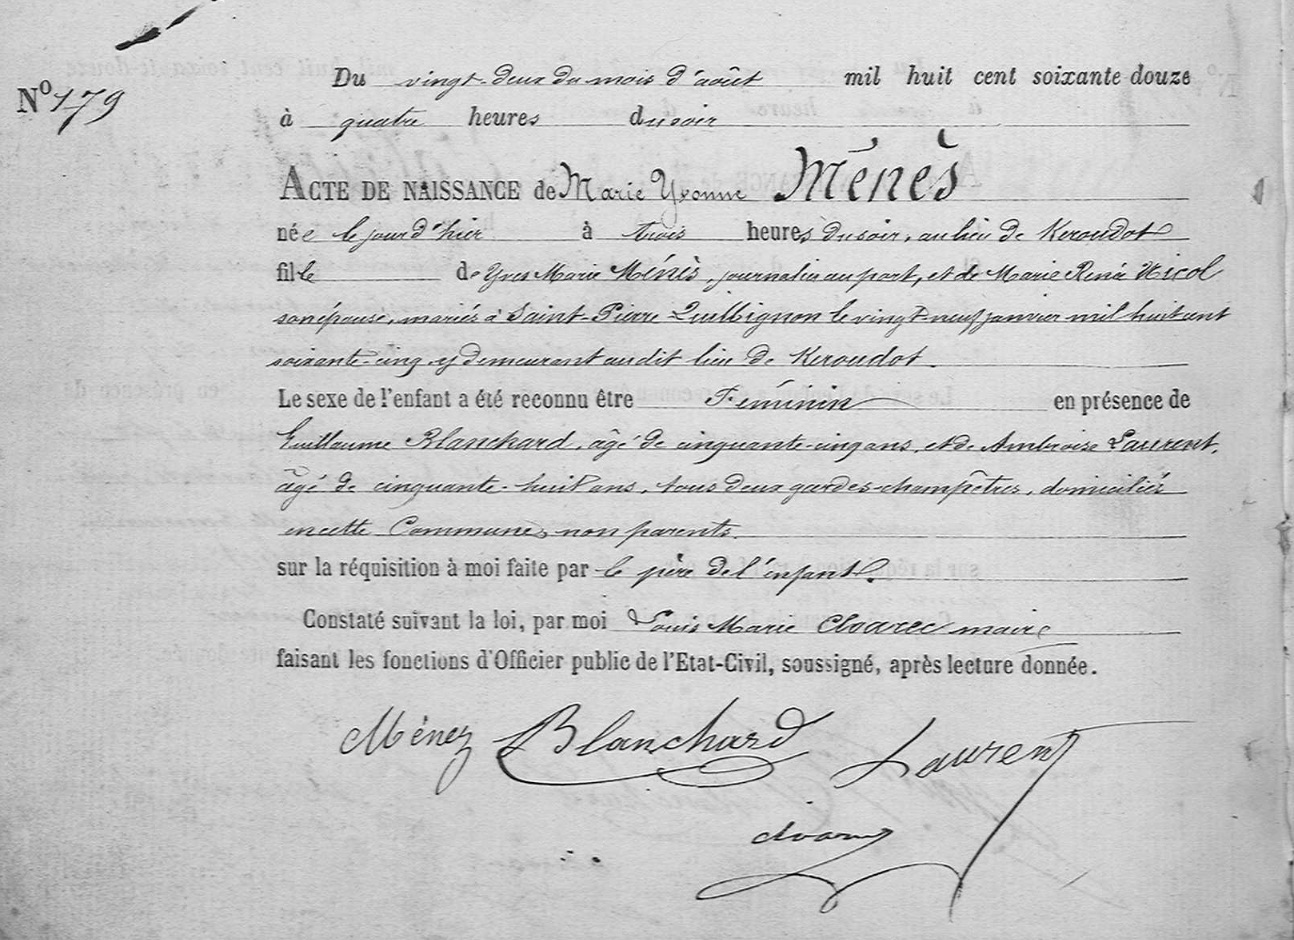 Du vingt-deux du mois d'août mil huit cent soixante douze
N° 179
à quatre heures du soir
ACTE DE NAISSANCE de Marie Yvonne Ménès
née le jour d'hier à trois heures du soir, au lieu de Keroudot
fille de Yves Marie Ménès, journalier au port, et de Marie Renée Nicol
son épouse, mariés à Saint-Pierre Quilbignon le vingt-neuf janvier mil huit cent
soixante-cinq y demeurant au dit lieu de Keroudot.
Le sexe de l'enfant a été reconnu être Féminin en présence de
Guillaume Blanchard, âgé de cinquante-cinq ans, et de Ambroise Laurent,
âgé de cinquante-huit ans, tous deux gardes-champêtres, domiciliés
en cette Commune, non parents.
sur la réquisition à moi faite par le père de l'enfant.
Constaté suivant la loi, par moi Louis Marie Cloarec maire
faisant les fonctions d'Officier public de l'Etat-Civil, soussigné, après lecture donnée.
Ménez Blanchard Laurent
Cloarec